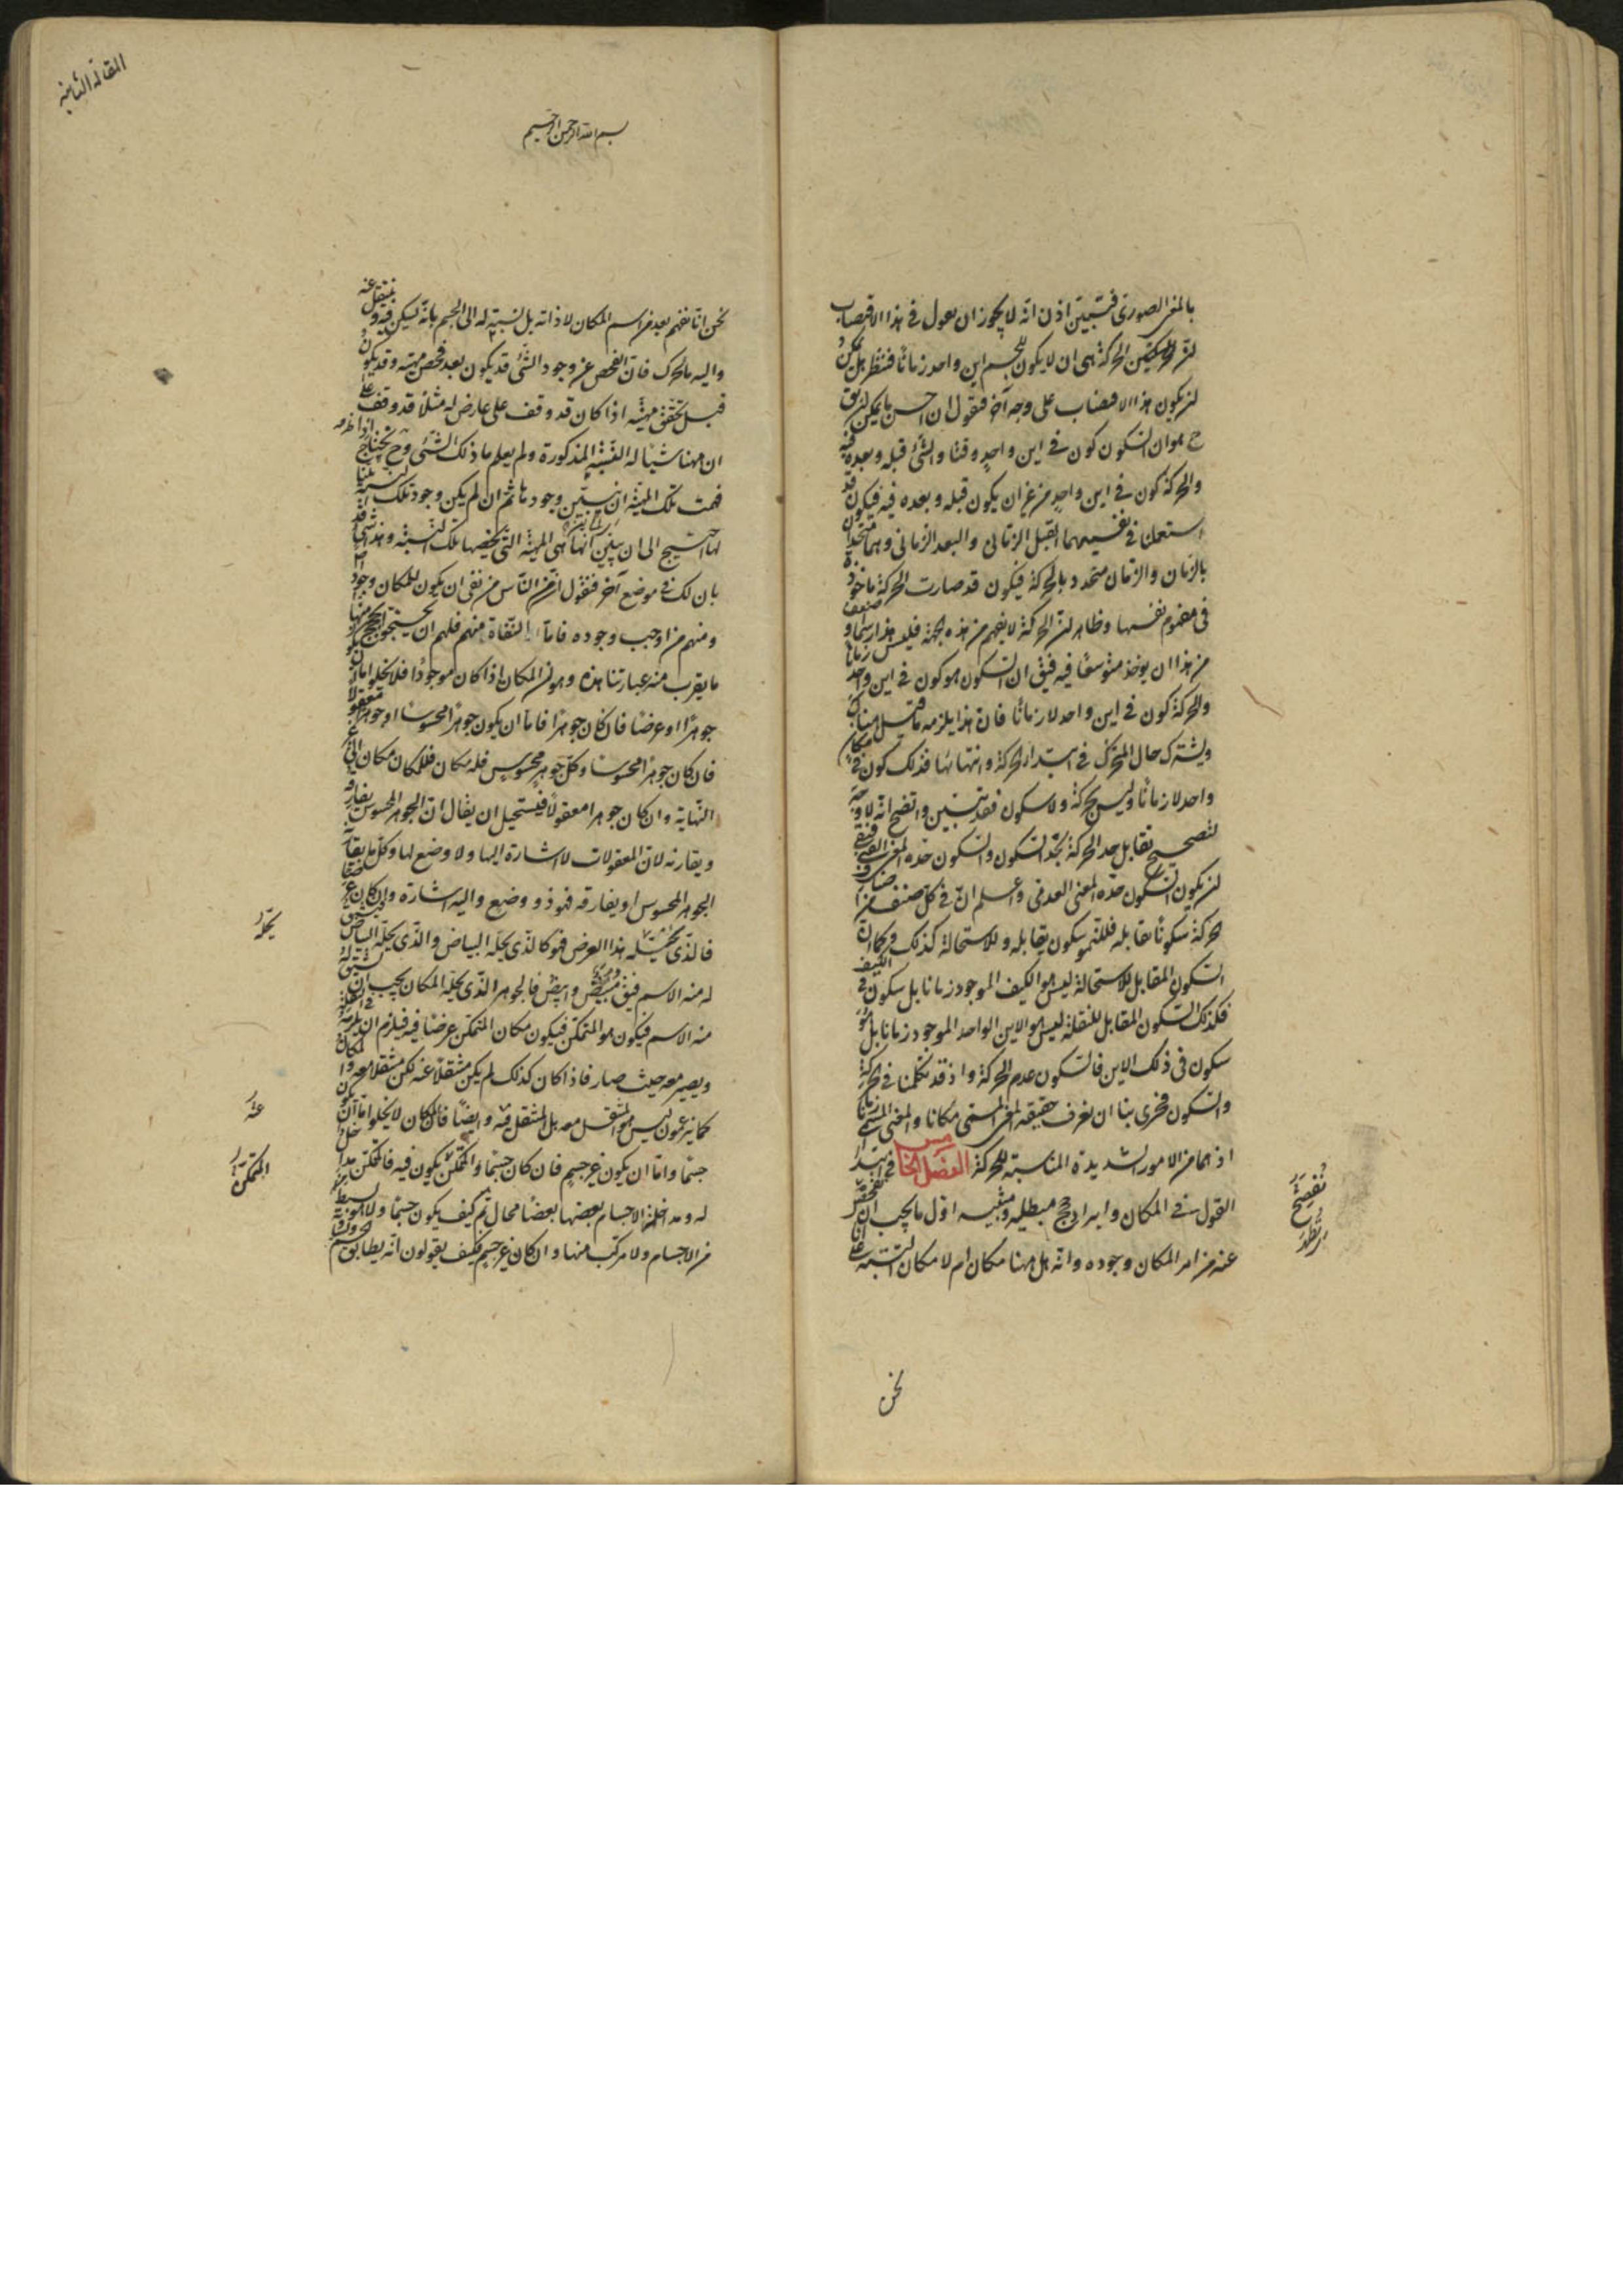 بالمعنى الصورى فتبين اذن انه لا يجوز ان نعول فى هذا الاقتضاب
الحركة هى ان لا يكون للجسم اين واحد زمانا فننظر هل يمكن
ان يكون هذا الاقتضاب على وجه آخر فنقول ان احسن ما يمكن ان يق
ح هو ان السكون كون فى اين واحد وقتا والشئ قبله وبعده فيه
والحركة كون فى اين واحد من غير ان يكون قبله وبعده فيه فيكون قد
استعملنا فى تفهيمهما القبل الزمانى والبعد الزمانى وهما متحدد
بالزمان والزمان متحدد بالحركة فيكون قد صارت الحركة ماخوذة
فى مفهوم نفسها وظاهر ان الحركة لا تفهم من هذه الجهة فليس هذا رسما و اضعف
من هذا ان يوخذ متوسعا فيه فيق ان السكون هو كون فى اين واحد زمانا
والحركة كون فى اين واحد لا زمانا فان هذا يلزمه ما قيل هناك
ويشترك حال المتحرك فى ابتداء الحركة وانتهائها فذلك كون فى مكان
واحد لا زمانا وليس بحركة ولا سكون فقد تبين واتضح انه لا وجه
لتصحيح تقابل حد الحركة بحد السكون والسكون حده المعنى القنى فبقى
ان يكون السكون حده المعنى العدمى واعلم ان فى كل صنف من اصناف
الحركة سكونا مقابله فللنمو سكون يقابله وللاستحالة كذلك فكما ان
السكون المقابل للاستحالة ليس هو الكيف الموجود زمانا بل سكون فى الكيف
فكذلك السكون المقابل للنقلة ليس هو الاين الواحد الموجود زمانا بل هو
سكون فى ذلك الاين فالسكون عدم الحركة واذ قد تكلمنا فى الحركة
والسكون فحرى بنا ان نعرف حقيقة المعنى المسمى مكانا والمعنى المسمى زمانا
اذ هما من الامور الشديدة المناسبة للحركة الفصل الخامس فى ابتداء
القول فى المكان وايراد حجج مبطليه ومثبتيه اول ما يجب ان نفحص
عنه من امر المكان وجوده وانه هل ههنا مكان ام لا مكان البتة على انا
نحن
المقالة الثانية
بسم الله الرحمن الرحيم
نحن انا نفهم بعد من اسم المكان لا ذاته بل نسبة له الى الجسم بانه يسكن فيه و ينتقل عنه
واليه بالحركة فان الفحص عن وجود الشئ قد يكون بعد فحص مهيته وقد يكون
قبل تحقق مهيته اذا كان قد وقف على عارض له مثلا قد وقف على
ان ههنا شيئا له النسبة المذكورة ولم يعلم ما ذلك الشئ وح يحتاج اذا
فهمت تلك المهية ان تبين وجودها ثم ان لم يكن وجود تلك النسبة بينا
لها احتيج الى ان يبين انها هى المهية التى تخصها تلك النسبة وهذا شئ قد
بان لك فى موضع آخر فنقول ان من الناس من نفى ان يكون للمكان وجود
ومنهم من اوجب وجوده فاما النفاة منهم فلهم ان يحتجوا بحجج منها
ما يقرب منه عبارتنا هذه وهو ان المكان اذا كان موجودا فلا يخلو اما ان يكون
جوهرا او عرضا فان كان جوهرا فاما ان يكون جوهرا محسوسا او جوهرا معقولا
فان كان جوهرا محسوسا وكل جوهر محسوس فله مكان فللمكان مكان الى غير
النهاية وان كان جوهرا معقولا فيستحيل ان يقال ان الجوهر المحسوس يفارقه
ويقارنه لان المعقولات لا اشارة اليها ولا وضع لها وكل ما يقارنه
الجوهر المحسوس او يفارقه فهو ذو وضع واليه اشارة وان كان عرضا
فالذى يحله هذا العرض فهو كالذى يحله البياض والذى يحله البياض يشتق
له منه الاسم فيق مبيض وابيض فالجوهر الذى يحله المكان يجب ان يشتق له
منه الاسم فيكون هو المتمكن فيكون مكان المتمكن عرضا فيه فيلزم ان يلزمه فى النقلة
ويصير معه حيث صار فاذا كان كذلك لم يكن منتقلا عنه لكن منتقلا معه والمكان
كما تزعمون ليس هو المنتقل معه بل المنتقل فيه وايضا فان المكان لا يخلو اما ان يكون
جسما واما ان يكون غير جسم فان كان جسما والمتمكن يكون فيه فالمتمكن مداخل
له ومداخلة الاجسام بعضها بعضا محال ثم كيف يكون جسما ولا هو بسيط
من الاجسام ولا مركب منها وان كان غير جسم فكيف يقولون انه يطابق الجسم
يحله
عنه
المتمكن